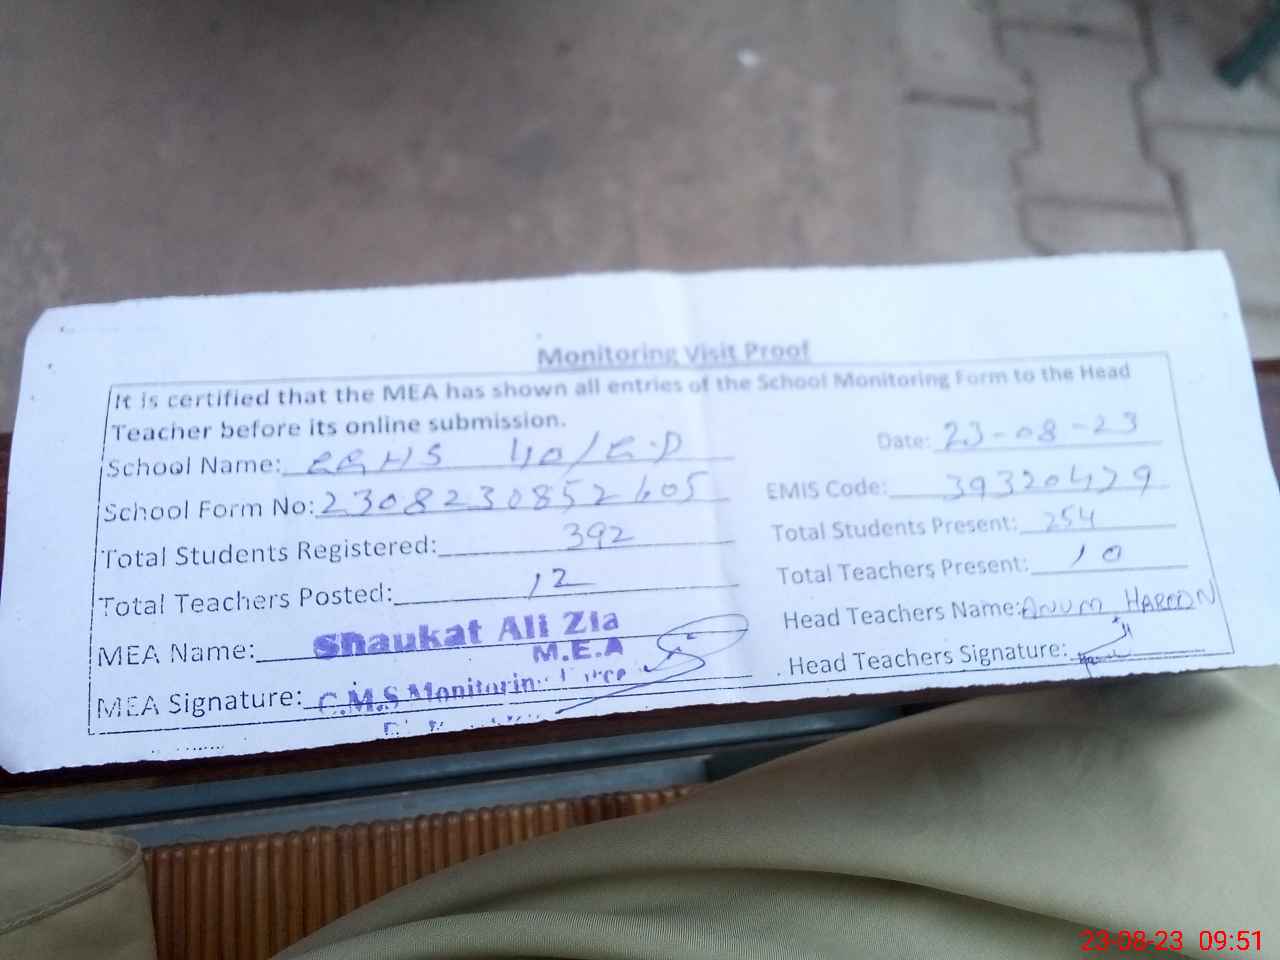 Monitoring Visit Proof
It is certified that the MEA has shown all entries of the School Monitoring Form to the Head
Teacher before its online submission.
Date: 23-08-23
School Name: GGHS 40/G.D
School Form No: 2308230852605 EMIS Code: 39320429
Total Students Registered: 392 Total Students Present: 254
Total Teachers Posted: 12 Total Teachers Present: 10
MEA Name: Shaukat Ali Zia Head Teachers Name: ANUM HAROON
M.E.A
MEA Signature: C.M.S Monitoring Force Head Teachers Signature:
23-08-23 09:51